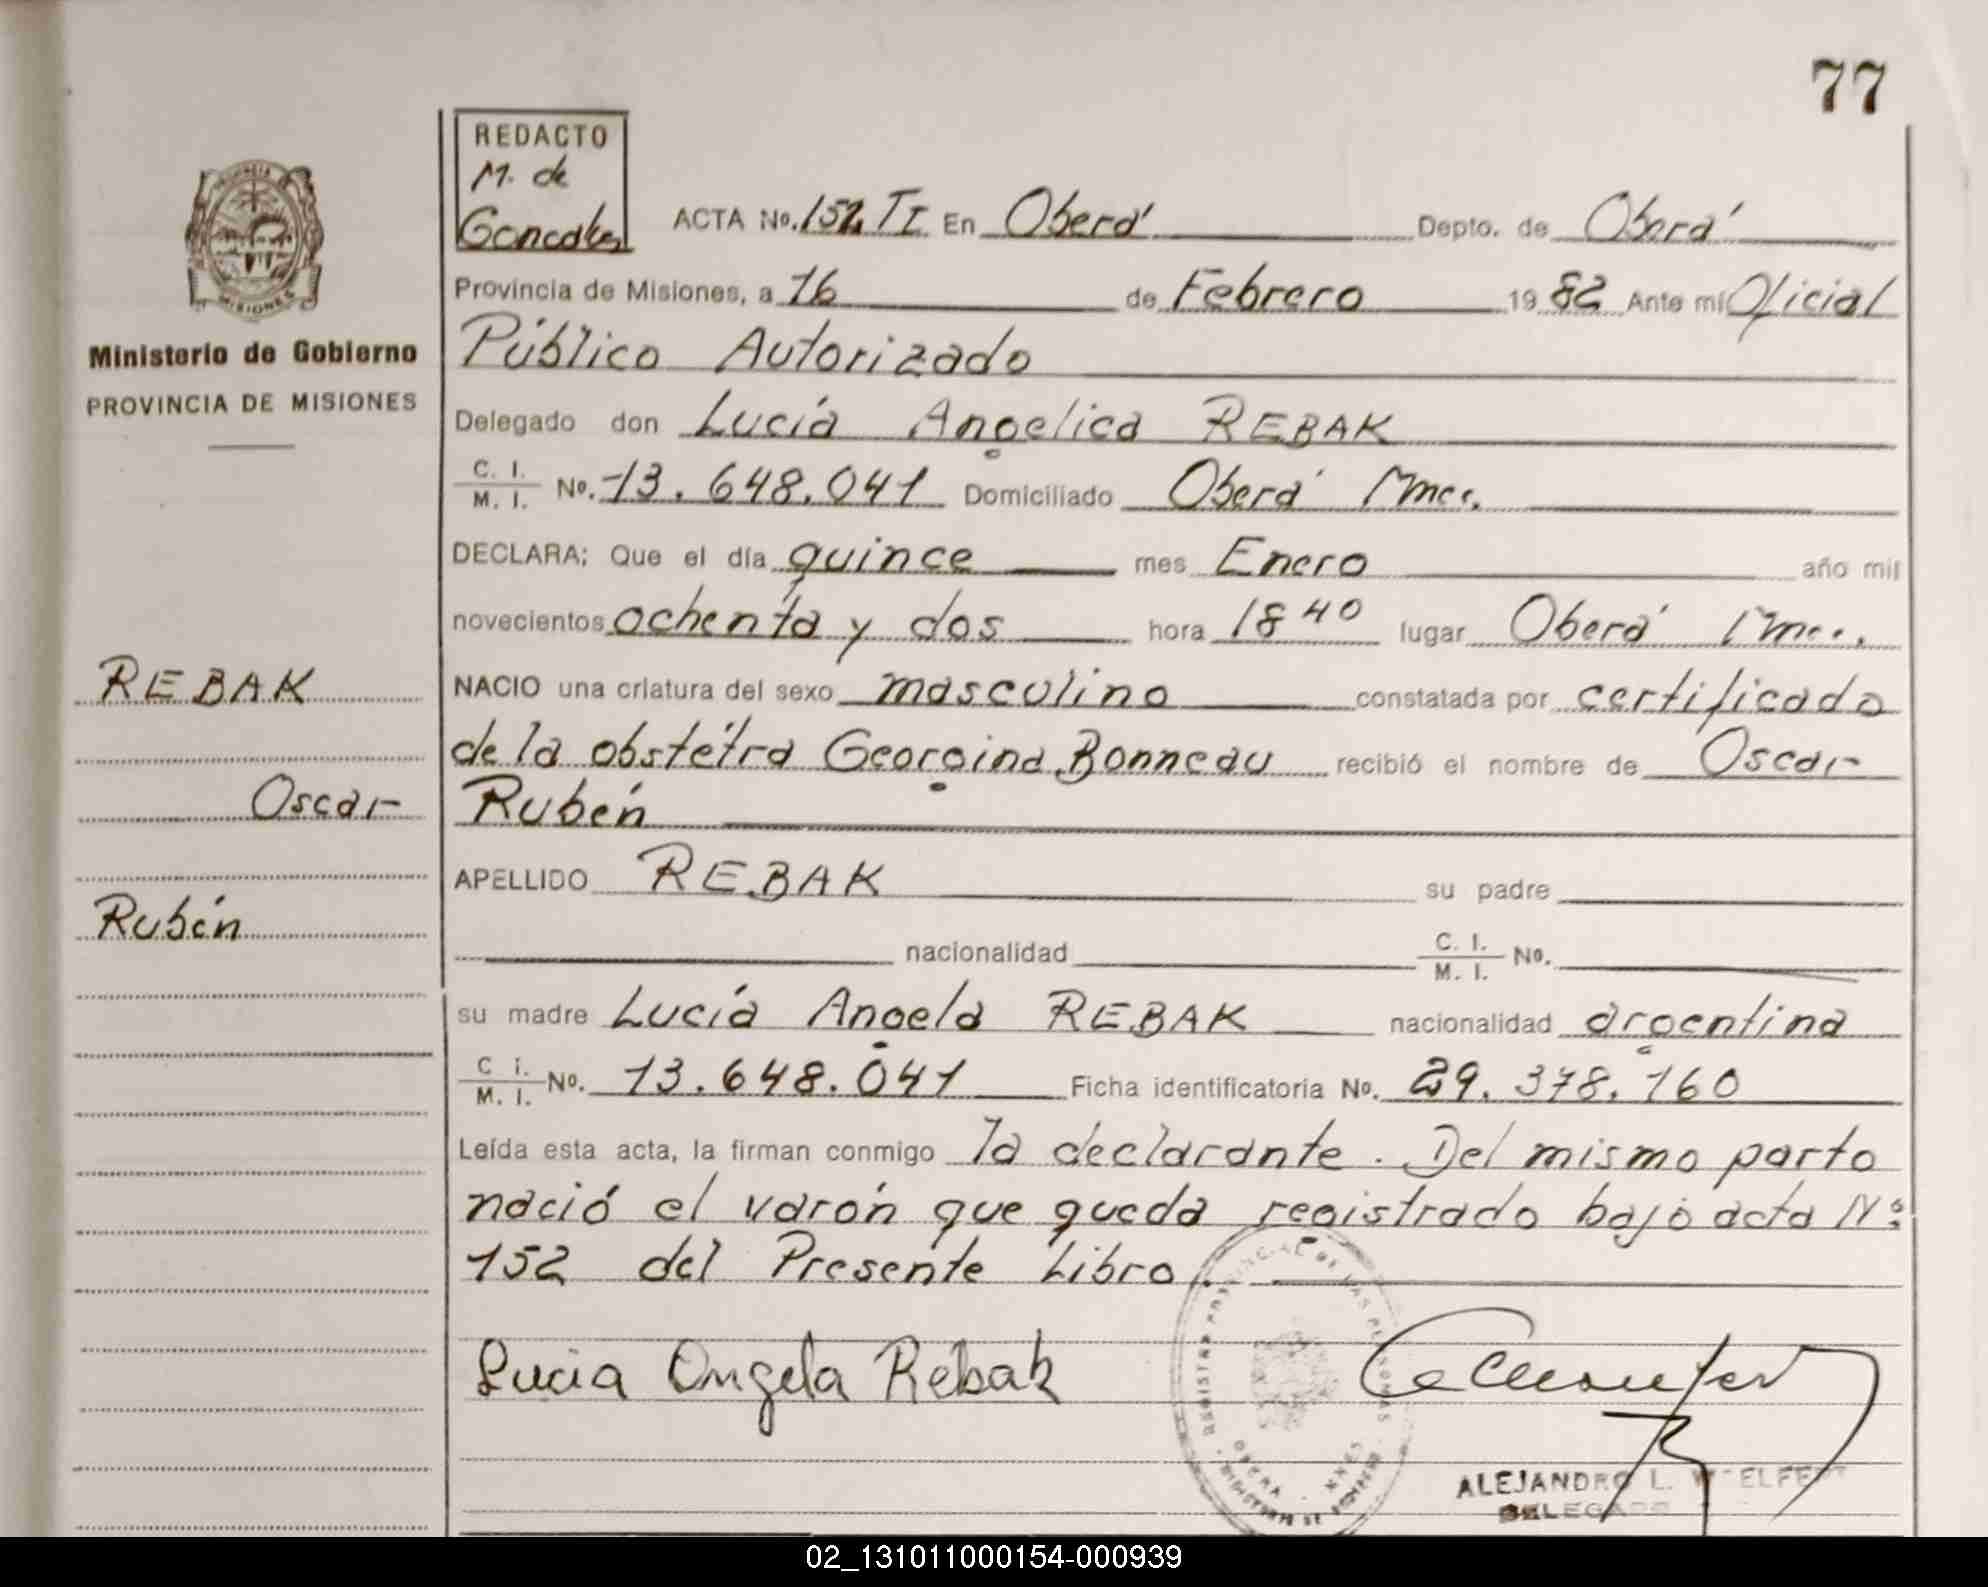 77
REDACTO
M. de
Goncalves
ACTA No. 152 TI En Oberá Depto. de Oberá
Provincia de Misiones, a 16 de Febrero 19 82 Ante mí Oficial
Público Autorizado
Ministerio de Gobierno
PROVINCIA DE MISIONES
Delegado don Lucía Angelica REBAK
C. I.
M. I. No. 13.648.041 Domiciliado Oberá Mnes.
DECLARA; Que el día quince mes Enero año mil
novecientos ochenta y dos hora 18 40 lugar Oberá Mnes.
REBAK
NACIO una criatura del sexo masculino constatada por certificado
de la obstétra Georgina Bonneau recibió el nombre de Oscar
Oscar
Rubén
APELLIDO REBAK su padre
Rubén
nacionalidad C. I.
M. I. No.
su madre Lucía Angela REBAK nacionalidad argentina
C. I.
M. I. No. 13.648.041 Ficha identificatoria No. 29.378.160
Leída esta acta, la firman conmigo la declarante. Del mismo parto
nació el varón que queda registrado bajo acta Nº
152 del Presente Libro.
Lucia Angela Rebak
ALEJANDRO L.
DELEGADO
02_131011000154-000939